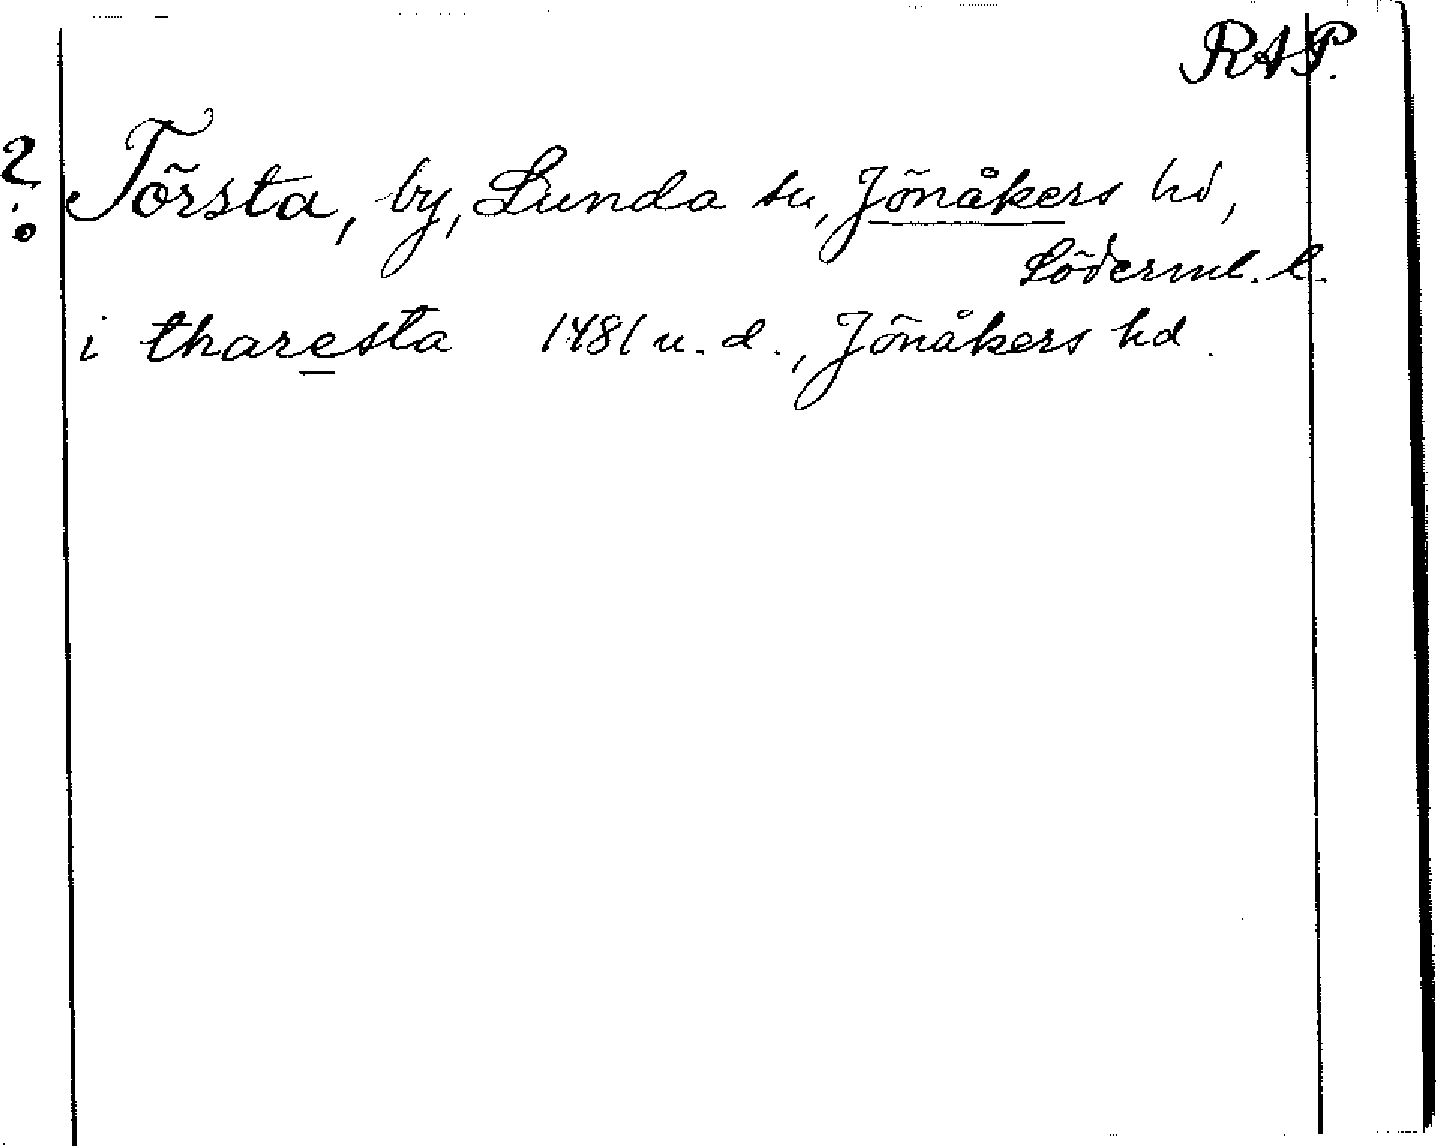 RAP.
? Törsta, by, Lunda sn, Jönåkers hd,
Söderml. l.
i tharesta 1481 u. d., Jönåkers hd.